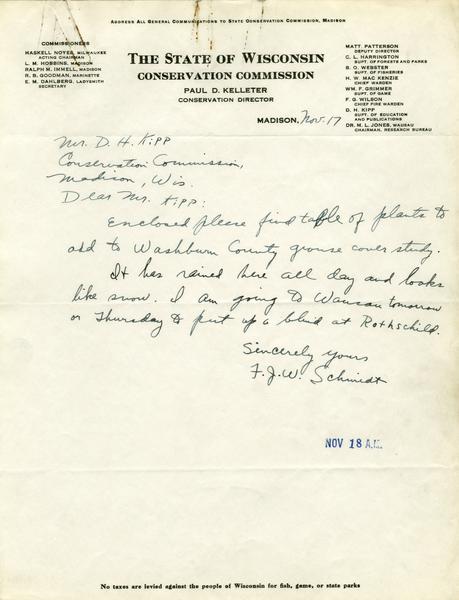 Address All General Communications to State Conservation Commission, Madison
Commissioners
Haskell Noyes, Milwaukee
Acting Chairman
L. M. Hobbins, Madison
Ralph M. Immell, Madison
R. B. Goodman, Marinette
E. M. Dahlberg, Ladysmith
Secretary
The State of Wisconsin
Conservation Commission
Paul D. Kelleter
Conservation Director
Matt. Patterson
Deputy Director
C. L. Harrington
Supt. of Forests and Parks
B. O. Webster
Supt. of Fisheries
H. W. Mac Kenzie
Chief Warden
Wm. F. Grimmer
Supt. of Game
F. G. Wilson
Chief Fire Warden
D. H. Kipp
Supt. of Education
and Publications
Dr. M. L. Jones, Wausau
Chairman, Research Bureau
Madison, Nov. 17
Mr. D. H. Kipp
Conservation Commission,
Madison, Wis.
Dear Mr. Kipp:
Enclosed please find table of plants to
add to Washburn County grouse cover study.
It has rained here all day and looks
like snow. I am going to Wausau tomorrow
or Thursday to put up a blind at Rothschild.
Sincerely yours
F. J. W. Schmidt
NOV 18 A.M.
No taxes are levied against the people of Wisconsin for fish, game, or state parks